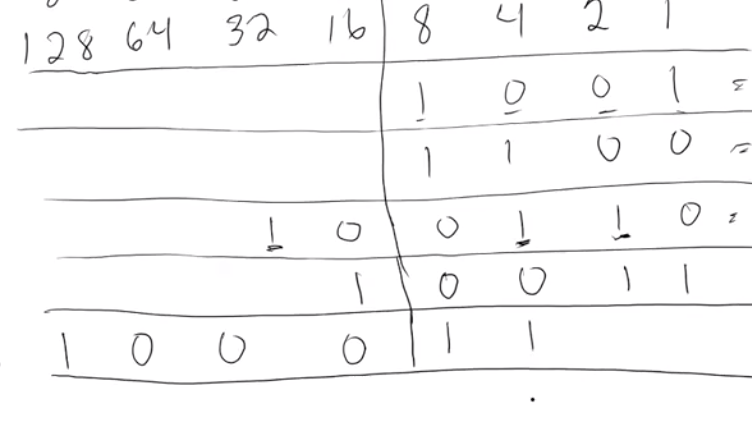 128 64 32 16 8 4 2 1
1 0 0 1 =
1 1 0 0 =
1 0 0 1 1 0 =
1 0 0 1 1
1 0 0 0 1 1